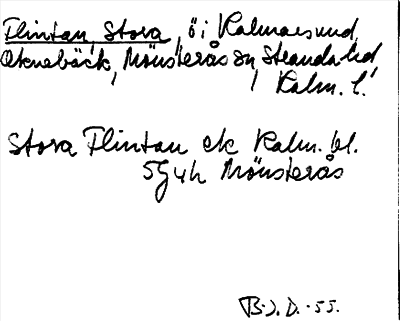 Flintan, Stora, ö i Kalmarsund,
Oknebäck, Mönsterås sn, Stranda hd
Kalm. l.
Stora Flintan ek Kalm. bl.
5G4h Mönsterås
B.J.D.-55.